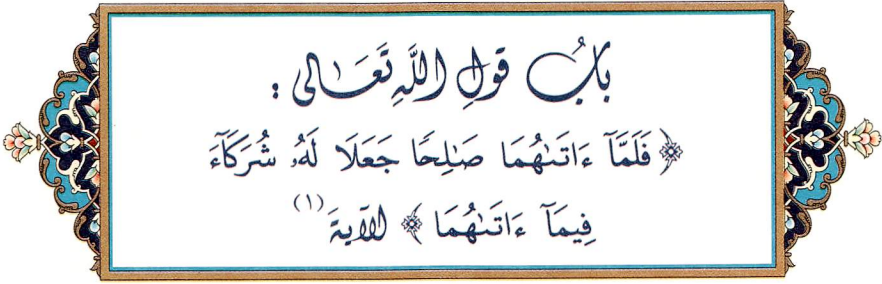 بَابُ قَوْلِ اللَّهِ تَعَالَى :
﴿ فَلَمَّآ ءَاتَىٰهُمَا صَٰلِحًا جَعَلَا لَهُۥ شُرَكَآءَ
فِيمَآ ءَاتَىٰهُمَا ﴾ الآيَةَ (١)